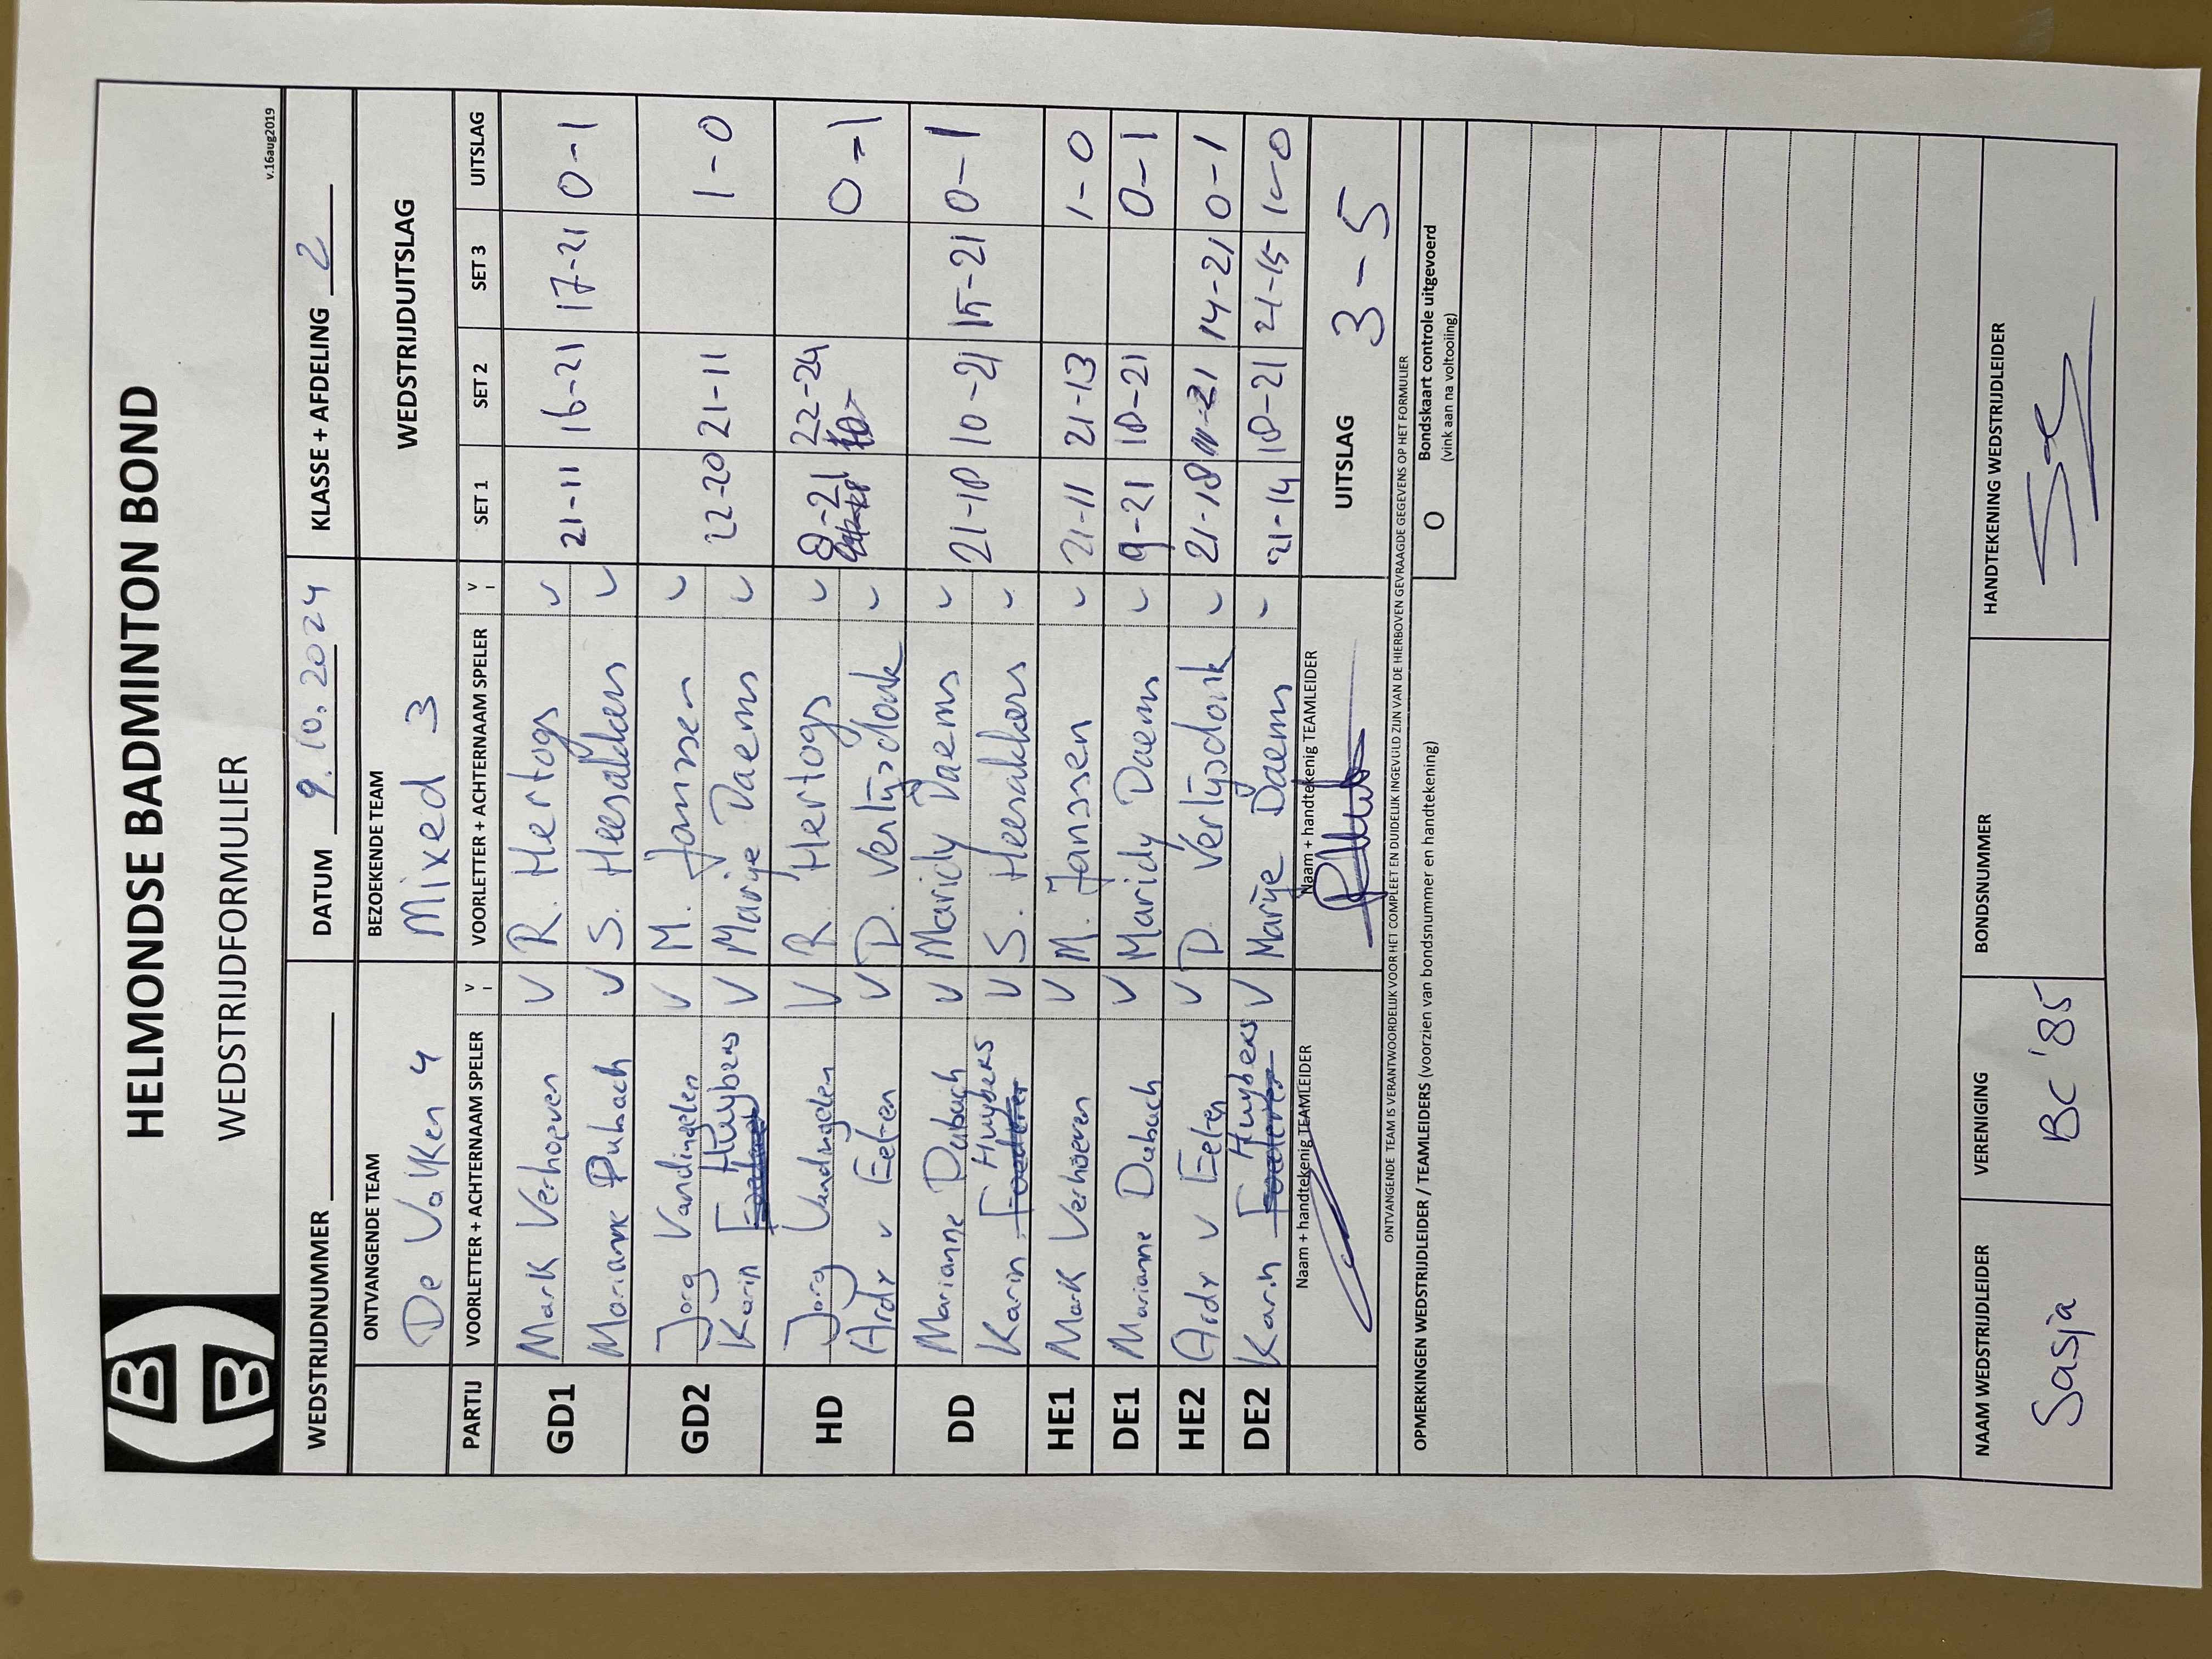 HELMONDSE BADMINTON BOND
WEDSTRIJDFORMULIER
v.16aug2019
WEDSTRIJDNUMMER
DATUM 9.10.2024
KLASSE + AFDELING 2
ONTVANGENDE TEAM
De Valken 4
BEZOEKENDE TEAM
Mixed 3
WEDSTRIJDUITSLAG
PARTIJ VOORLETTER + ACHTERNAAM SPELER V I VOORLETTER + ACHTERNAAM SPELER V I SET 1 SET 2 SET 3 UITSLAG
GD1 Mark Verhoeven V R. Hertogs V 21-11 16-21 17-21 0-1
Marianne Dubach V S. Heesakkers V
GD2 Jorg Vandingelen V M. Janssen V 22-20 21-11 1-0
Karin Huybers V Marije Daems V
HD Jorg Vandingelen V R. Hertogs V 8-21 22-24 0-1
Ardy v Eeten V D. Vertijsdonk V
DD Marianne Dubach V Maridy Daems V 21-18 10-21 15-21 0-1
Karin Huybers V S. Heesakkers V
HE1 Mark Verhoeven V M. Janssen V 21-11 21-13 1-0
DE1 Marianne Dubach V Maridy Daems V 9-21 18-21 0-1
HE2 Ardy v Eeten V D. Vertijsdonk V 21-18 21 14-21 0-1
DE2 Karin Huybers V Marije Daems V 21-14 18-21 21-15 1-0
Naam + handtekenig TEAMLEIDER
Naam + handtekenig TEAMLEIDER
UITSLAG 3-5
ONTVANGENDE TEAM IS VERANTWOORDELIJK VOOR HET COMPLEET EN DUIDELIJK INGEVULD ZIJN VAN DE HIERBOVEN GEVRAAGDE GEGEVENS OP HET FORMULIER
OPMERKINGEN WEDSTRIJDLEIDER / TEAMLEIDERS (voorzien van bondsnummer en handtekening)
O Bondskaart controle uitgevoerd
(vink aan na voltooiing)
NAAM WEDSTRIJDLEIDER
Sasja
VERENIGING
BC '85
BONDSNUMMER
HANDTEKENING WEDSTRIJDLEIDER